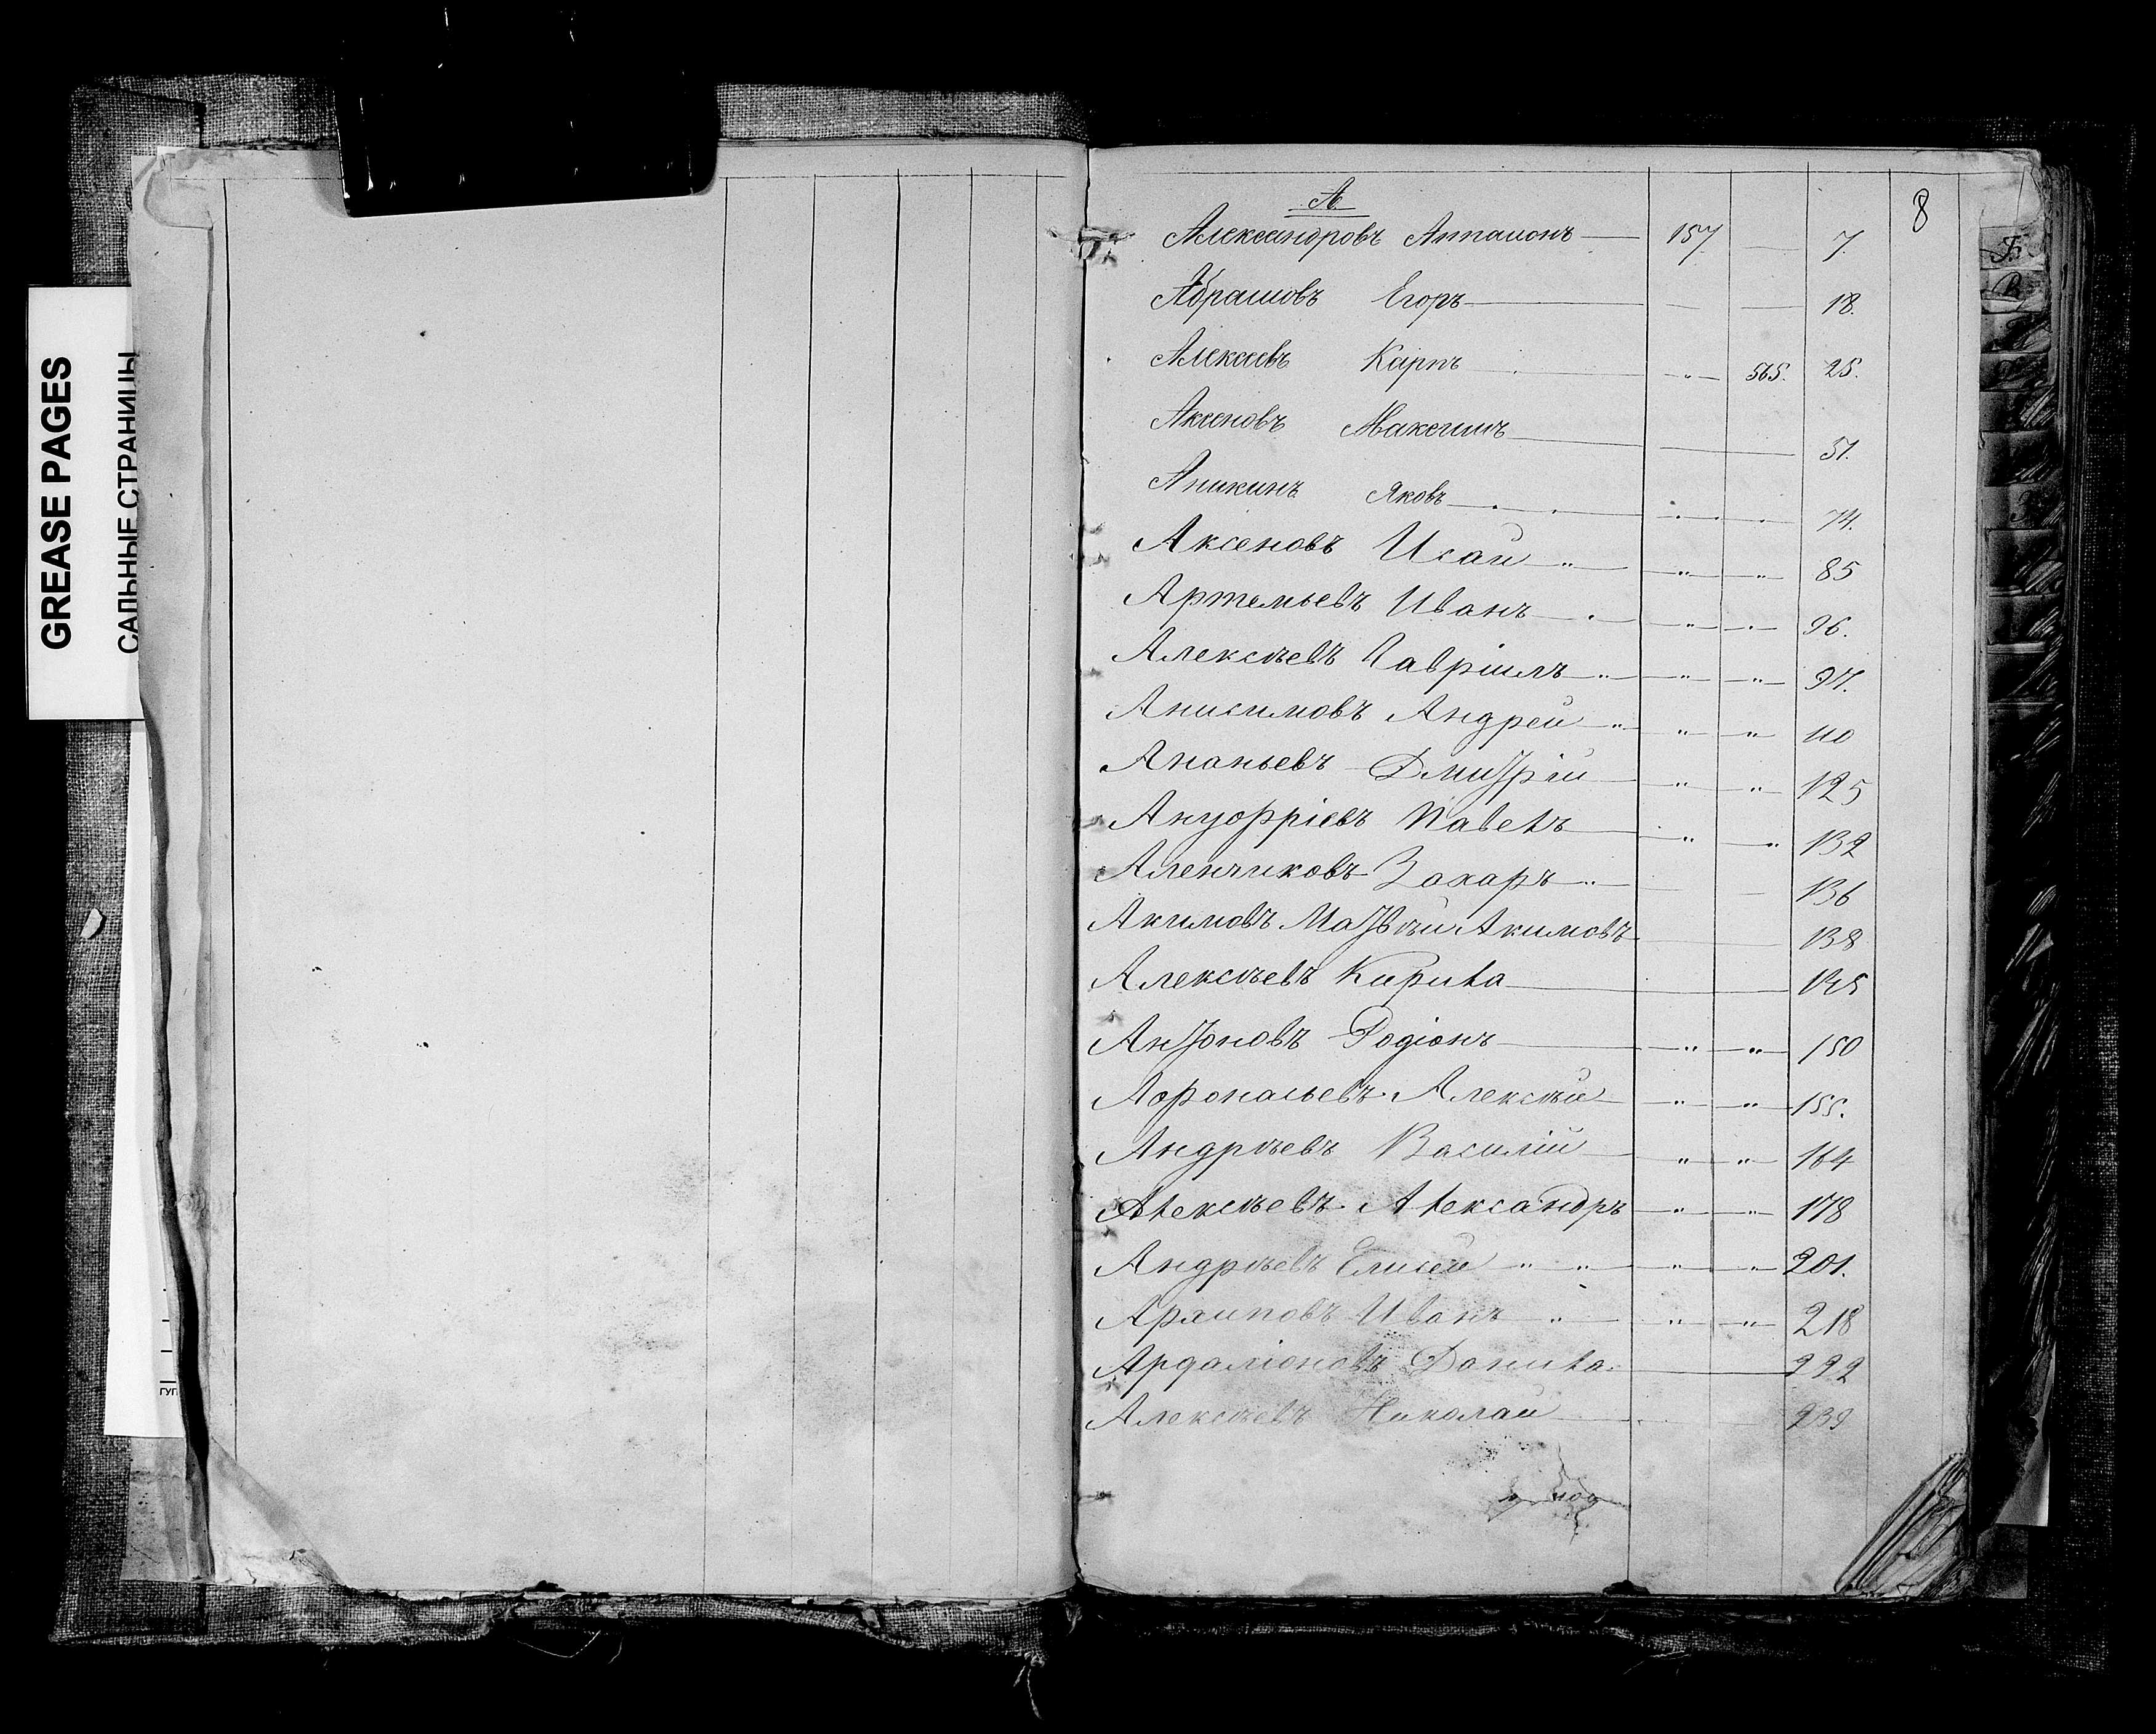 GREASE PAGES
САЛЬНЫЕ СТРАНИЦЫ
8
А.
Александровъ Антамонъ 157 7.
Абрамовъ Егоръ 18.
Алексѣевъ Карпъ 565. 25.
Аксеновъ Максимъ 51.
Аникинъ Яковъ 74.
Аксеновъ Исай 85
Артемьевъ Иванъ 96.
Алексѣевъ Гавріилъ 97.
Анисимовъ Андрей 110
Ананьевъ Дмитрій 125
Ануфріевъ Павелъ 132
Аленчиковъ Захаръ 136
Акимовъ Матвѣй Акимовъ 138
Алексѣевъ Кирила 145
Антоновъ Родіонъ 150
Афонасьевъ Алексѣй 155.
Андрѣевъ Василій 164
Алексѣевъ Александръ 178
Андрѣевъ Елисей 201.
Архиповъ Иванъ 218
Ардаліоновъ Данила 222
Алексѣевъ Николай 232